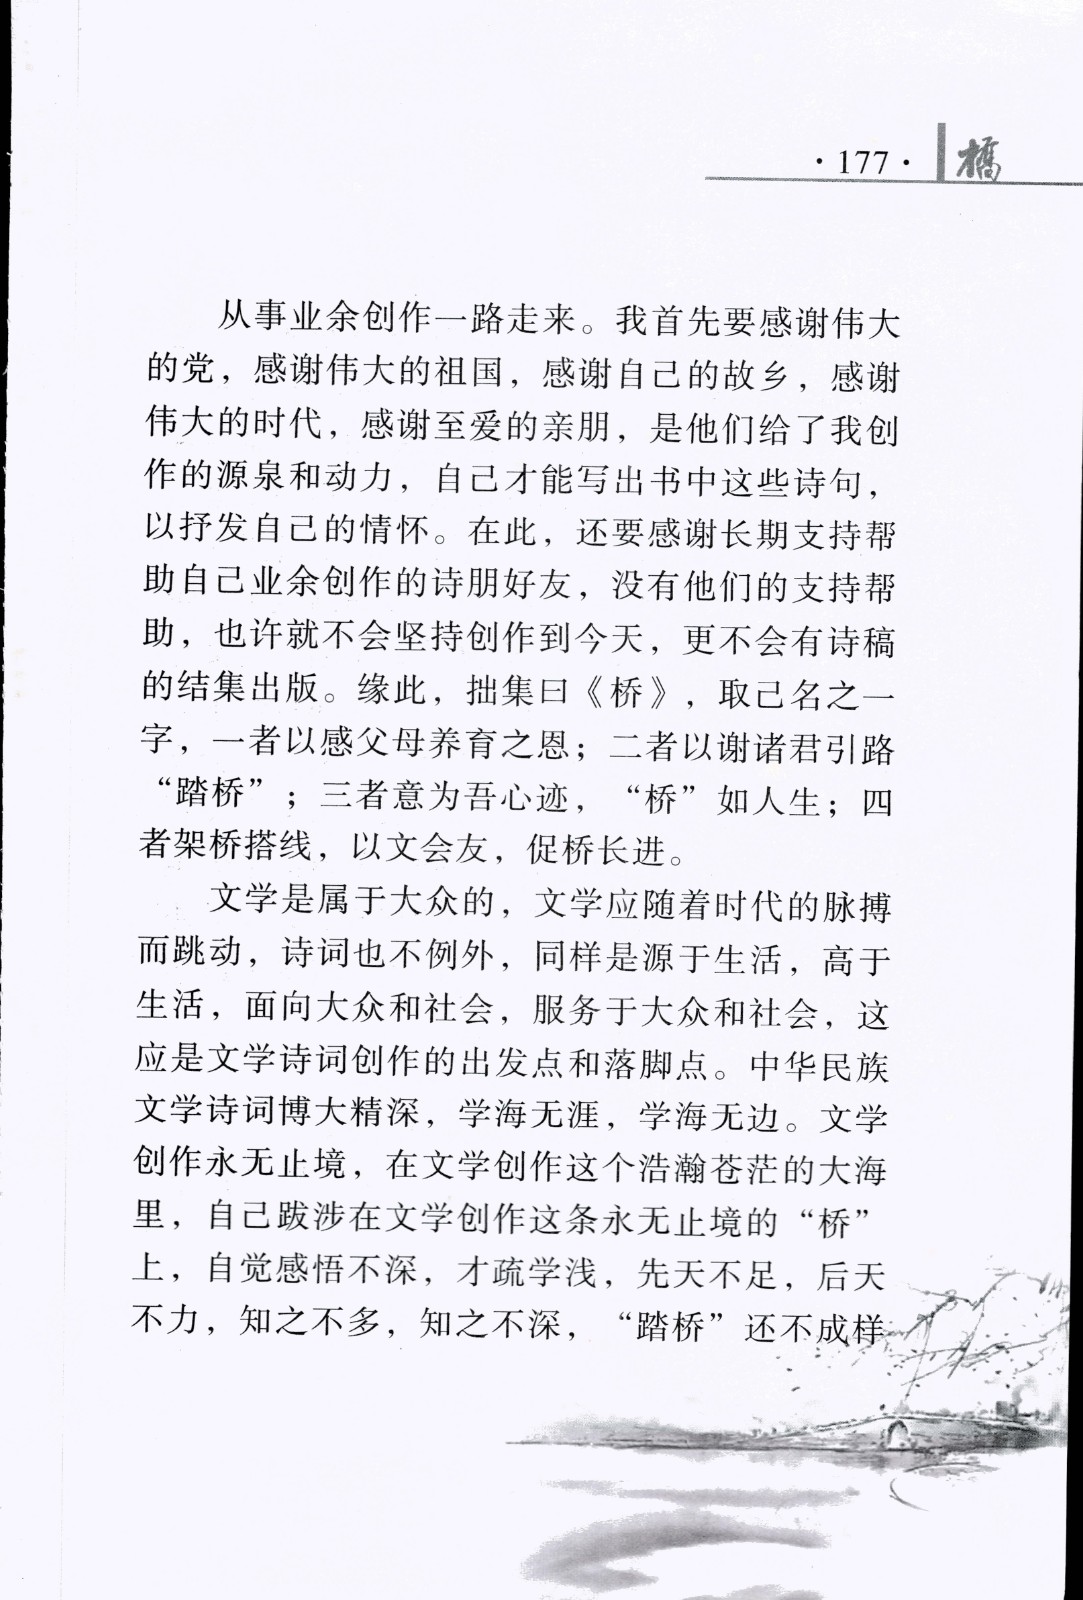 · 177 · 橋
从事业余创作一路走来。我首先要感谢伟大
的党，感谢伟大的祖国，感谢自己的故乡，感谢
伟大的时代，感谢至爱的亲朋，是他们给了我创
作的源泉和动力，自己才能写出书中这些诗句，
以抒发自己的情怀。在此，还要感谢长期支持帮
助自己业余创作的诗朋好友，没有他们的支持帮
助，也许就不会坚持创作到今天，更不会有诗稿
的结集出版。缘此，拙集曰《桥》，取己名之一
字，一者以感父母养育之恩；二者以谢诸君引路
“踏桥”；三者意为吾心迹，“桥”如人生；四
者架桥搭线，以文会友，促桥长进。
文学是属于大众的，文学应随着时代的脉搏
而跳动，诗词也不例外，同样是源于生活，高于
生活，面向大众和社会，服务于大众和社会，这
应是文学诗词创作的出发点和落脚点。中华民族
文学诗词博大精深，学海无涯，学海无边。文学
创作永无止境，在文学创作这个浩瀚苍茫的大海
里，自己跋涉在文学创作这条永无止境的“桥”
上，自觉感悟不深，才疏学浅，先天不足，后天
不力，知之不多，知之不深，“踏桥”还不成样